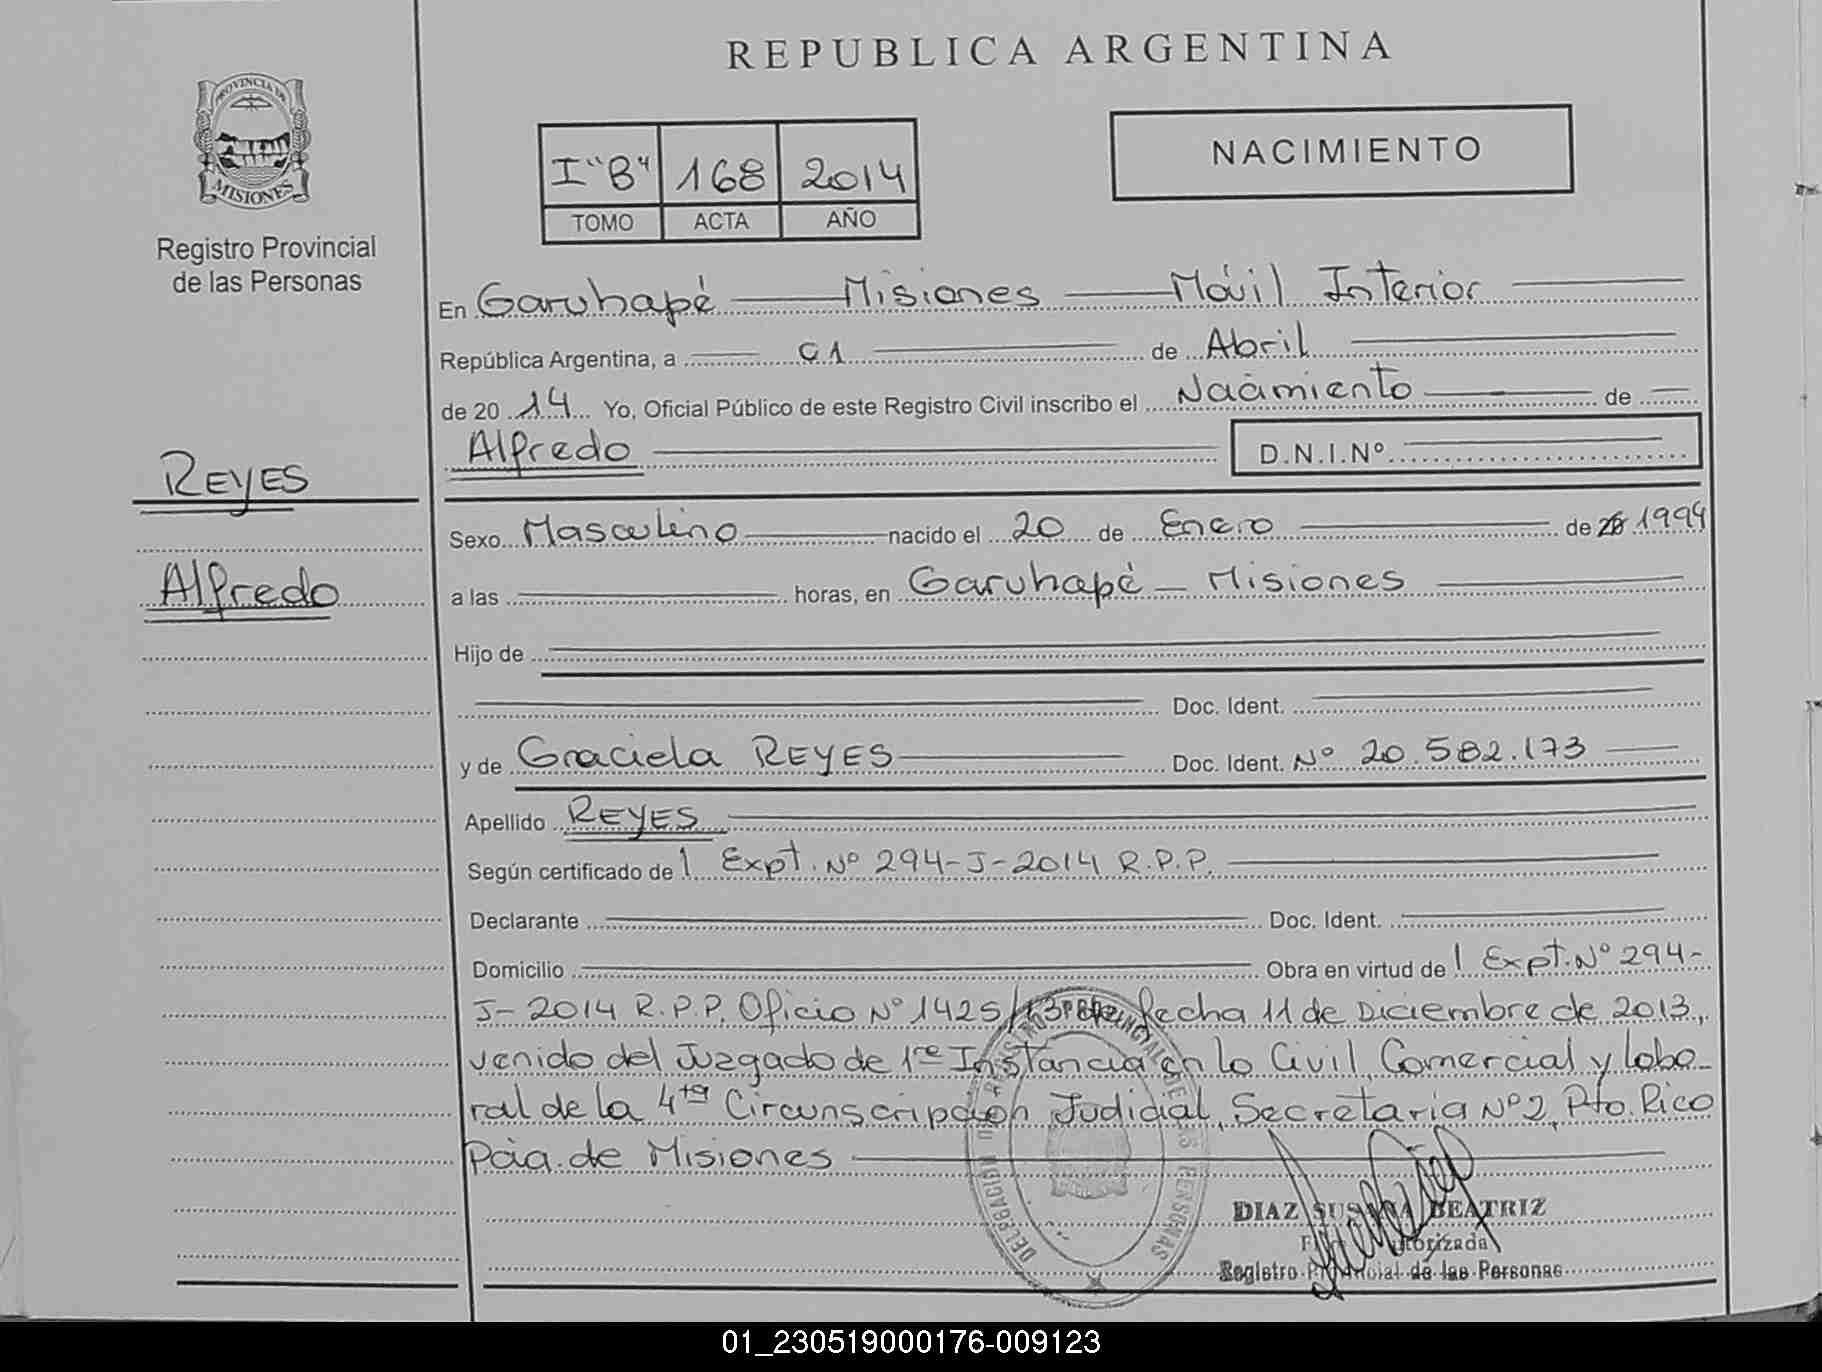 REPUBLICA ARGENTINA
PROVINCIA DE
MISIONES
Registro Provincial
de las Personas
NACIMIENTO
I "B" 168 2014
TOMO ACTA AÑO
En Garuhapé Misiones Móvil Interior
República Argentina, a 01 de Abril
de 2014 Yo, Oficial Público de este Registro Civil inscribo el Nacimiento de
Alfredo D.N.I.Nº
REYES
Alfredo
Sexo Masculino nacido el 20 de Enero de 1994
a las horas, en Garuhapé - Misiones
Hijo de
Doc. Ident.
y de Graciela REYES Doc. Ident. Nº 20.582.173
Apellido REYES
Según certificado de 1 Expt. Nº 294-J-2014 R.P.P.
Declarante Doc. Ident.
Domicilio Obra en virtud de 1 Expt. Nº 294-
J-2014 R.P.P. Oficio Nº 1425/13 de fecha 11 de Diciembre de 2013,
venido del Juzgado de 1re Instancia en lo Civil, Comercial y labo-
ral de la 4ta Circunscripción Judicial, Secretaria Nº 2, Pto. Rico
Pcia. de Misiones
DELEGACION DEL REGISTRO PROVINCIAL DE LAS PERSONAS
DIAZ SUSANA BEATRIZ
Autorizada
Registro Provincial de las Personas
01_230519000176-009123